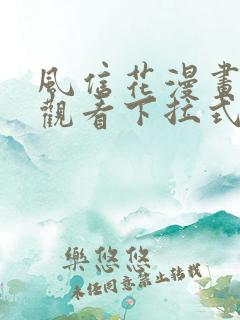 風信花漫畫
觀看下拉式
樂悠悠
未经同意禁止转载